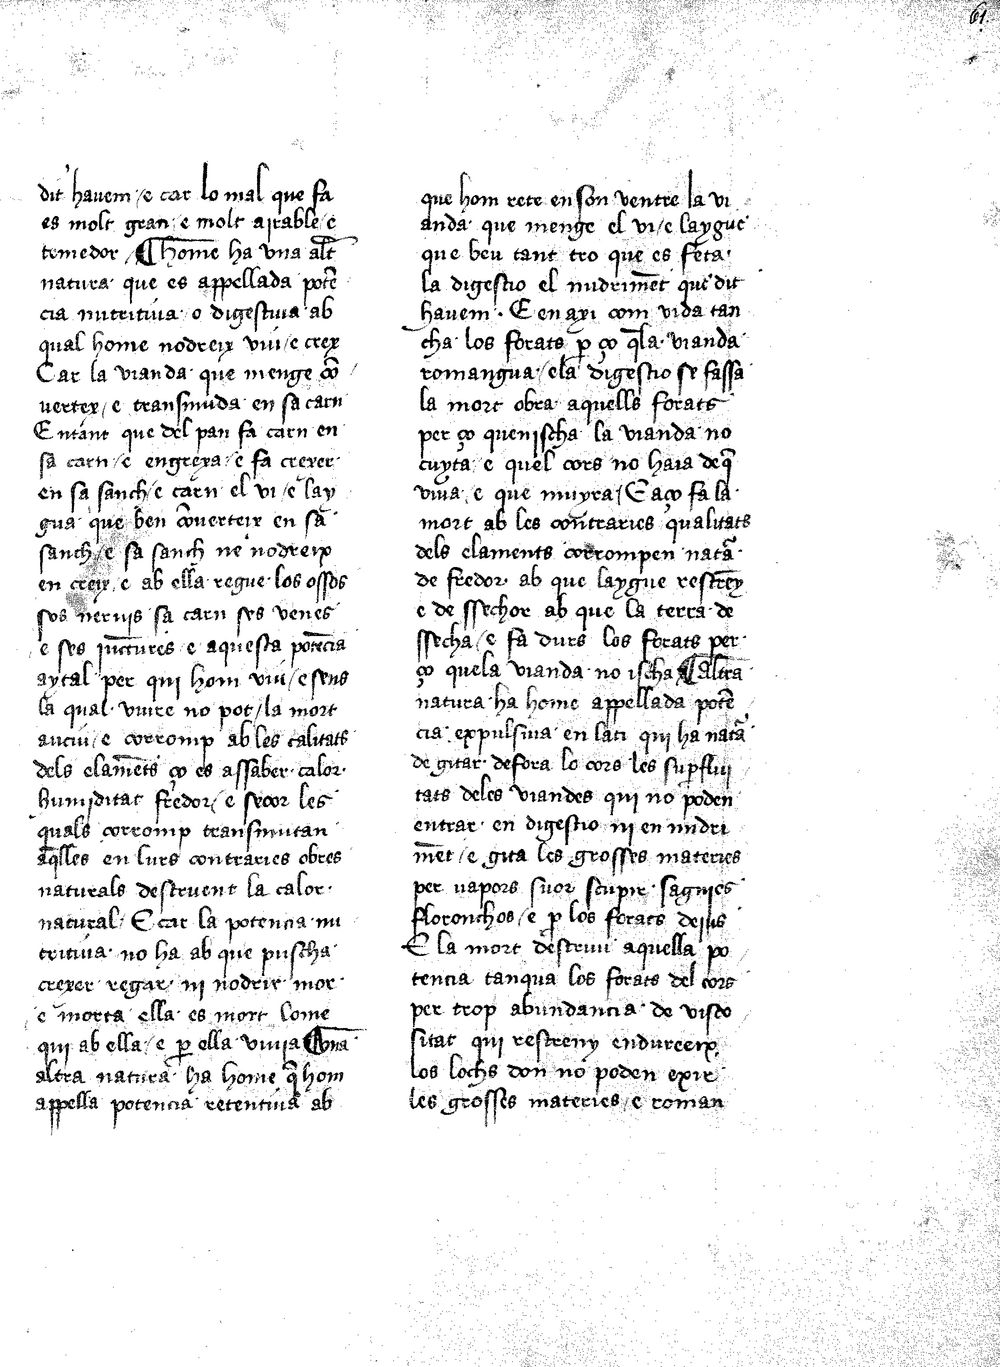 61
dit havem / e car lo mal que fa
es molt gran / e molt ajrable / e
temedor / ¶ home ha vna alt̃
natura que es appellada potẽ
cia nutritiua o digestiua ab
qual home nodreix viu / e crex
Car la vianda que menge cõ
uertex / e transmuda en sa carn
E entant que del pan fa carn en
sa carn / e engrexa / e fa crexer
en sa sanch / e carn el vi / e lay
gua que ben cõuerteix en sa
sanch / e sa sanch ne nodreix
en creix / e ab ella regue los ossos
ses neruis sa carn ses venes
e ses jũctures e aquesta potẽcia
aytal per qui hom viu / e sens
la qual viure no pot / la mort
auciu / e corromp ab les calitats
dels elamẽts ço es assaber calor
humiditat fredor / e secor les
quals corromp transmutan
aq̃lles en lurs contraries obres
naturals destruent la calor
natural / E car la potencia nu
tritiua no ha ab que puscha
crexer regar / ni nodrir mor
e morta ella es mort lome
qui ab ella / e ꝑ ella viuia ¶ Vna
altra natura ha home q̃ hom
appella potencia retentiua ab
que hom rete en son ventre la vi
anda que menge el vi / e laygue
que beu tant tro que es feta
la digestio el nudrimẽt que dit
havem · E en axi com vida tan
cha los forats ꝑ ço q̃ la vianda
romangua / e la digestio se fassa
la mort obra aquells forats
per ço quenischa la vianda no
cuyta / e quel cors no haia de q̃
viua / e que muyra / E aço fa la
mort ab les cont̃raries qualitats
dels elaments corrompen natã
de fredor ab que laygue restrẽy
e de ssechor ab que la terra de
ssecha / e fa durs los forats per
ço quela vianda no ischa ¶ altra
natura ha home appellada potẽ
cia expulsiua en lati qui ha natã
de gitar defora lo cors les suꝑflui
tats deles viandes qui no poden
entrar en digestio ni en nudri
mẽt / e gita les grosses materies
per vapors suor scupir sagnies
floronchos / e ꝑ los forats dejus
E la mort destruu aquella po
tencia tanqua los forats del cors
per trop abundancia de visco
sitat qui restreny endureeix
los lochs don no poden exir
les grosses materies / e roman